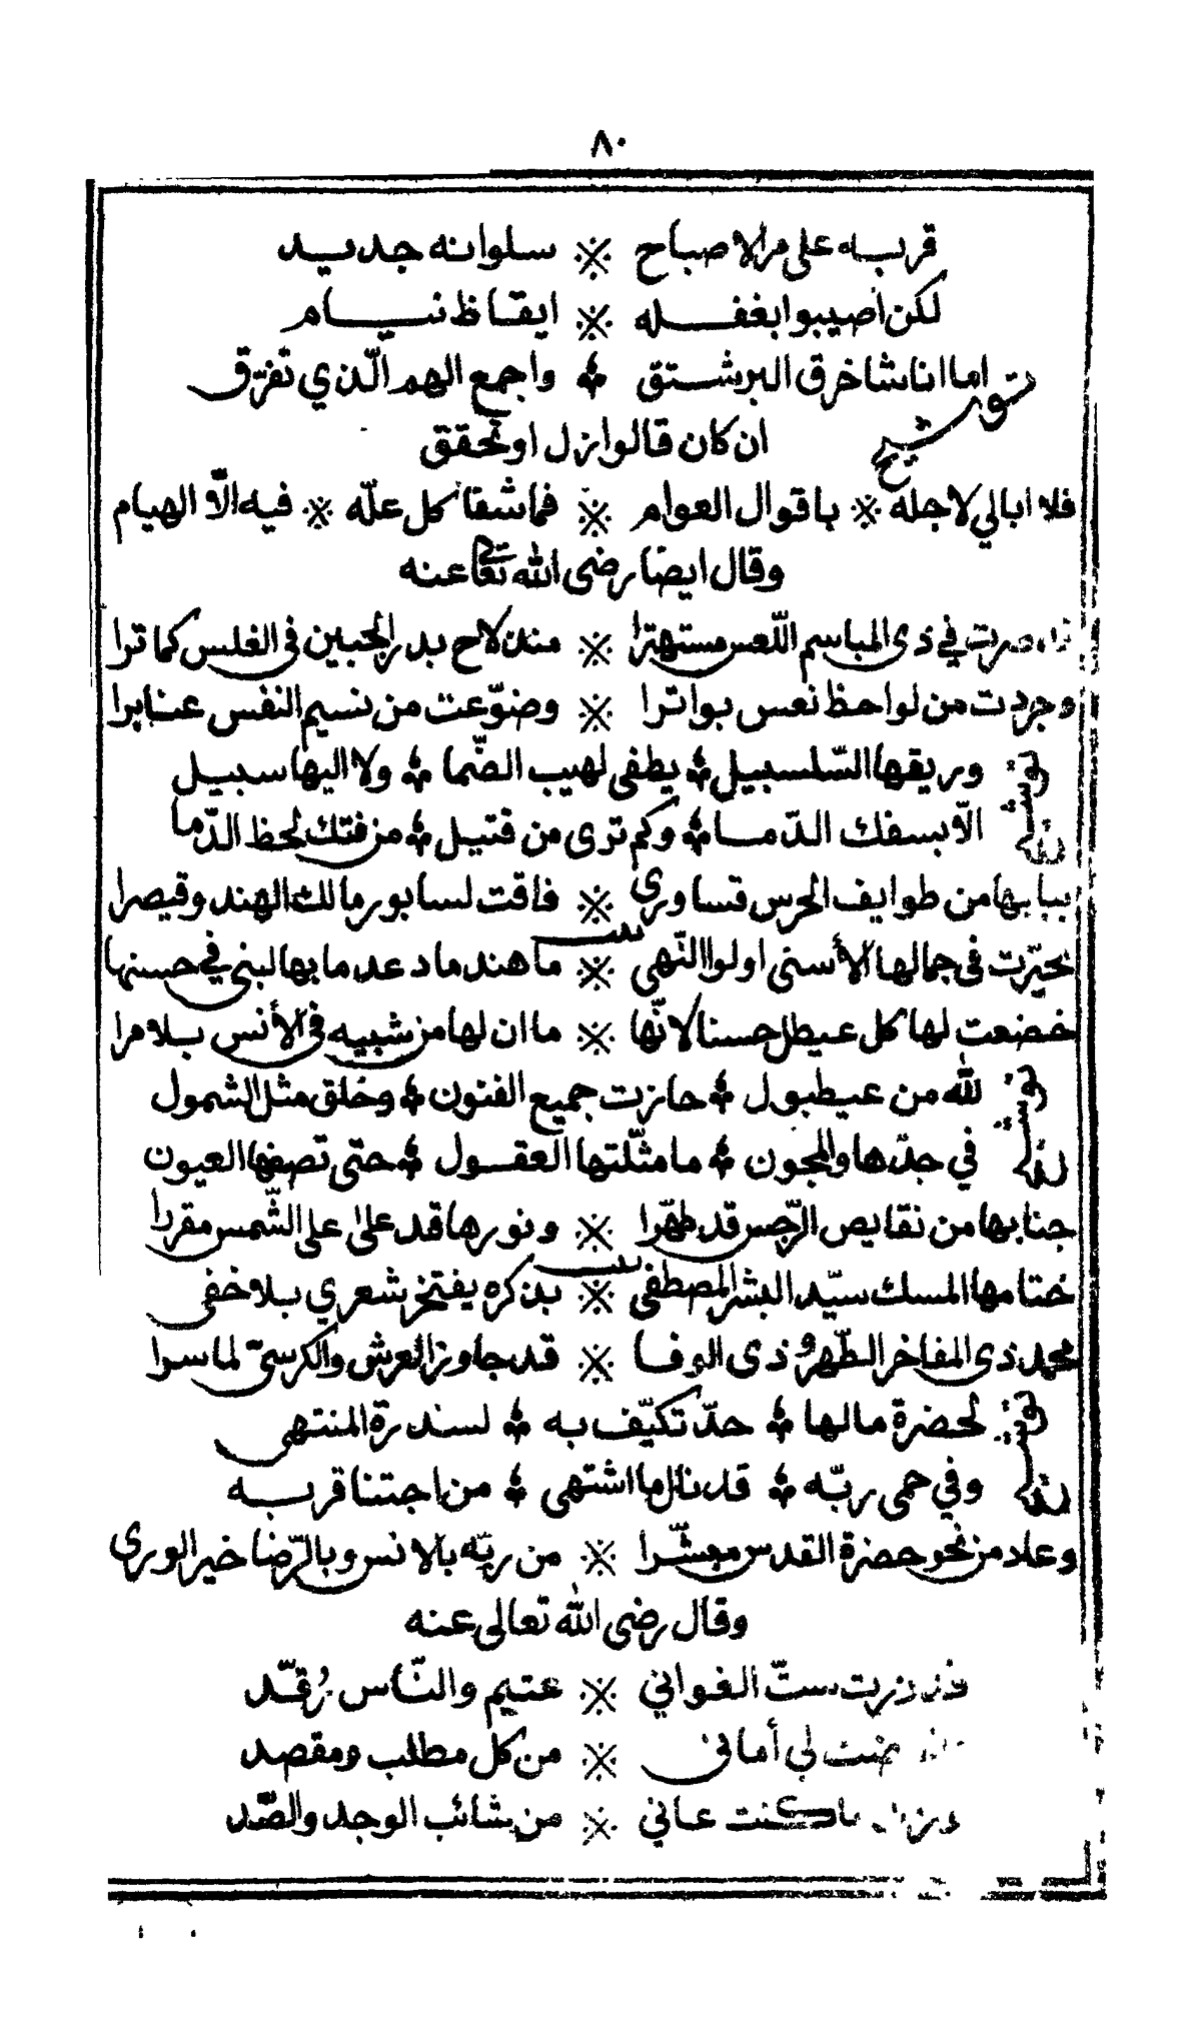 ٨٠
قربه على مر الاصباح ※ سلوانه جديد
لكن اصيبوا بغفله ※ ايقاظ نيام
توشيح
اما انا ساخرق البرشتق ※ واجمع الهم الّذي تفرّق
ان كان قالوا زل او تحقق
فلا ابالي لاجله ※ باقوال العوام ※ فما شفا كل علّه ※ فيه الّا الهيام
وقال ايضا رضى الله تعالى عنه
صرت في ذى المباسم اللّعس مستهترا ※ منذ لاح بدر الجبين في الغلس كما ترا
وجردت من لواحظ نعس بواترا ※ وضوّعت من نسيم النفس عنابرا
توشيح
وريقها السّلسبيل ※ يطفى لهيب الضّما ※ ولا اليها سبيل
الّا بسفك الدّما ※ وكم ترى من قتيل ※ من فتك لحظ الدّما
ببابها من طوايف الحرس قساورى ※ فاقت لسابور مالك الهند وقيصرا
تحيّرت في جمالها الأسنى اولوا النّهى ※ ما هند ما دعد ما بها لبنى في حسنها
خضعت لها كل عيطل حسنا لانّها ※ ما ان لها من شبيه في الأنس بلا مرا
توشيح
لله من عيطبول ※ حازت جميع الفنون ※ وخلق مثل الشمول
في جدّها والمجون ※ ما مثّلتها العقول ※ حتى تصفها العيون
جنابها من نقايص الرّجس قد طهّرا ※ ونورها قد علىٰ على الشّمس مقررا
ختامها المسك سيّد البشر المصطفى ※ بذكره يفتخر شعري بلا خفى
محمد ذى المفاخر الطّهر وذى الوفا ※ قد جاوز العرش والكرسيّ لما سرا
توشيح
لحضرة مالها ※ حدّ تكيّف به ※ لسندرة المنتهى
وفي حمى ربّه ※ قد نال ما اشتهى ※ من اجتنا قربه
وعلا من نحو حضرة القدس مبشّرا ※ من ربّه بالانس وبالرّضا خير الورى
وقال رضى الله تعالى عنه
زرت ستّ الغواني ※ عتيم والنّاس رُقّد
لي أماني ※ من كل مطلب ومقصد
ما كنت عاني ※ من شائب الوجد والصّد